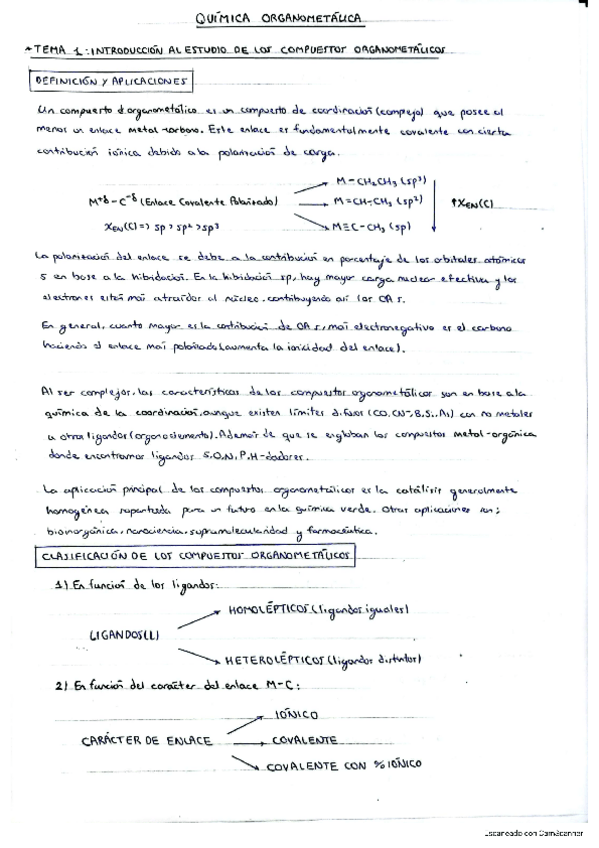 QUÍMICA ORGANOMETÁLICA
TEMA 1: INTRODUCCIÓN AL ESTUDIO DE LOS COMPUESTOS ORGANOMETÁLICOS
DEFINICIÓN Y APLICACIONES
Un compuesto organometálico es un compuesto de coordinación (complejo) que posee al
menos un enlace metal-carbono. Este enlace es fundamentalmente covalente con cierta
contribución iónica debido a la polarización de carga.
M-CH2CH3 (sp³)
M⁺ᵟ-C⁻ᵟ (Enlace Covalente Polarizado)
M=CH-CH3 (sp²)
↑XEN(C)
XEN(C) => sp > sp² > sp³
M≡C-CH3 (sp)
La polarización del enlace se debe a la contribución en porcentaje de los orbitales atómicos
s en base a la hibidación. En la hibidación sp, hay mayor carga nuclear efectiva y los
electrones están más atraídos al núcleo, contribuyendo así los OA s.
En general, cuanto mayor es la contribución de OA s, más electronegativo es el carbono
haciendo el enlace más polarizado (aumenta la ionicidad del enlace).
Al ser complejos, las características de los compuestos organometálicos son en base a la
química de la coordinación, aunque existen límites difusos (CO, CN⁻, B, Si, As) con no metales
u otros ligandos (organoelemento). Además de que se engloban los compuestos metal-orgánica
donde encontramos ligandos S, O, N, P, H-dadores.
La aplicación principal de los compuestos organometálicos es la catálisis generalmente
homogénea soportada para un futuro en la química verde. Otras aplicaciones son;
bioinorgánica, nanociencia, supramolecularidad y farmacéutica.
CLASIFICACIÓN DE LOS COMPUESTOS ORGANOMETÁLICOS
1) En función de los ligandos:
HOMOLÉPTICOS (ligandos iguales)
LIGANDOS (L)
HETEROLÉPTICOS (ligandos distintos)
2) En función del carácter del enlace M-C:
IÓNICO
CARÁCTER DE ENLACE
COVALENTE
COVALENTE CON % IÓNICO
Escaneado con CamScanner